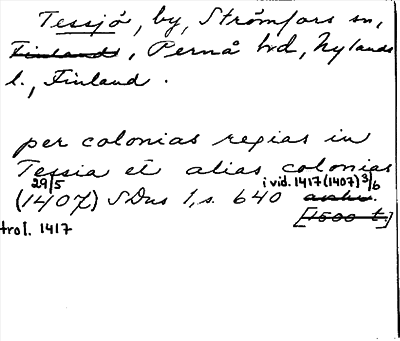 Tessjö, by, Strömfors sn,
Finlands, Pernå hd, Nylands
l., Finland.
per colonias regias in
Tessia et alias colonias
29/5 i vid. 1417 (1407) 3/6
(1407) SDns 1, s. 640
[1500 t.]
trol. 1417